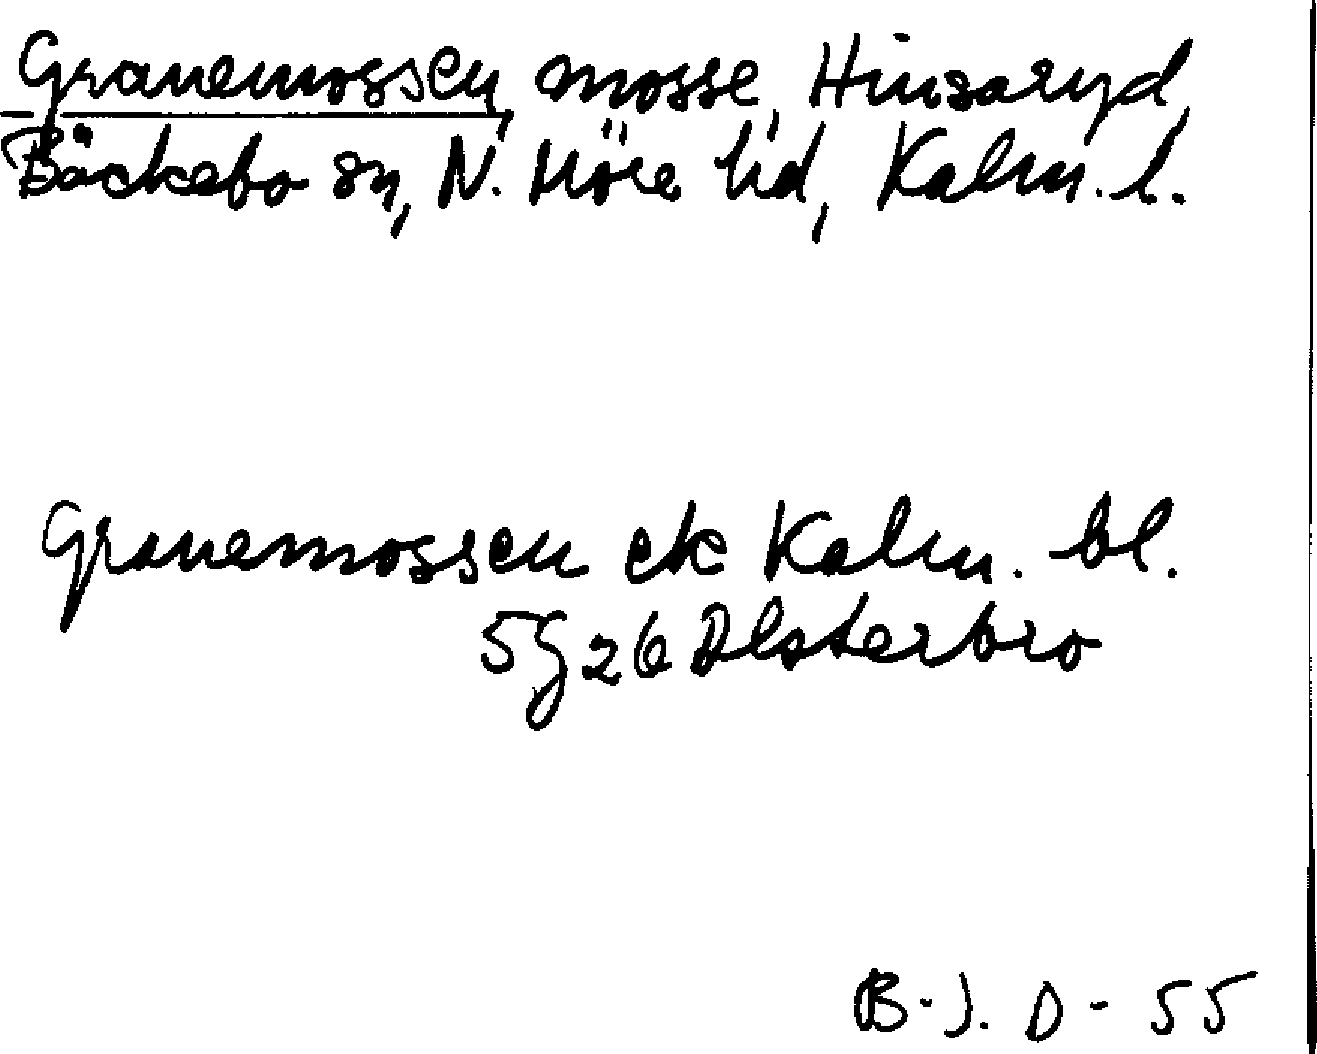 Granemossen, mosse, Hinsaryd,
Bäckebo sn, N. Möre hd, Kalm. l.
Granemossen ek Kalm. bl.
5g26 Alsterbro
B-J. D-55